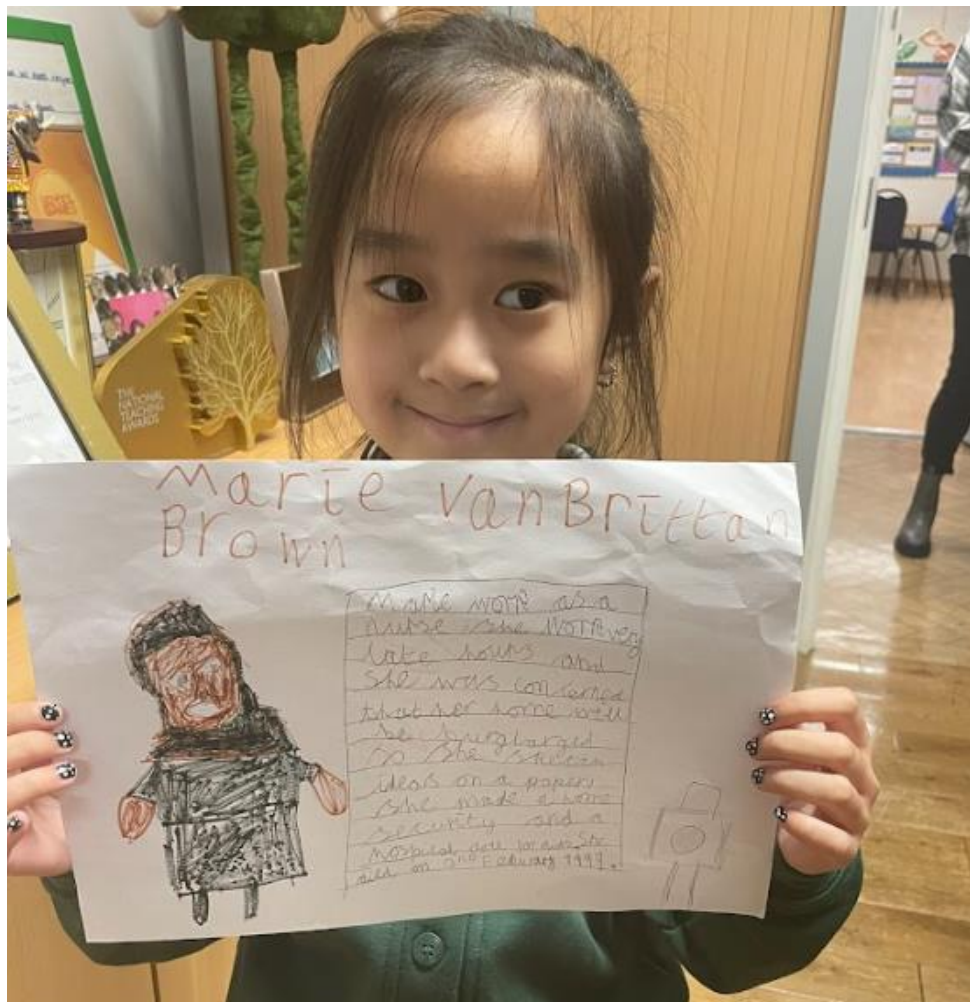 THE
NATIONAL
TEACHING
AWARDS
Marie VanBrittan
Brown
Marie work as a
nurse she work very
late hours and
she was concerned
that her home will
be burglarged
so she
ideas on a paper
she made a home
security and a
hospital She
died on 2nd February 1999.